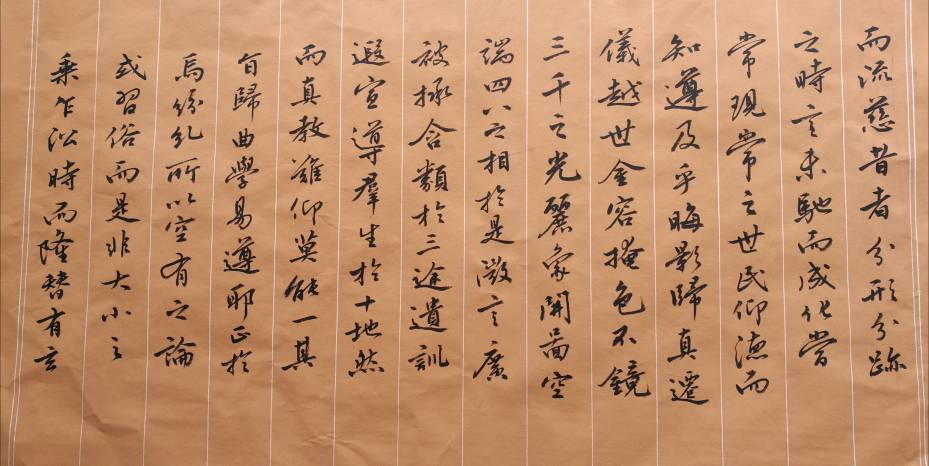 而流慈昔者分形分跡
之時言未馳而成化當
常現常之世民仰德而
知遵及乎晦影歸真遷
儀越世金容掩色不鏡
三千之光麗象開圖空
端四八之相於是微言廣
被拯含類於三途遺訓
遐宣導羣生於十地然
而真教難仰莫能一其
旨歸曲學易遵耶正於
焉紛糺所以空有之論
或習俗而是非大小之
乘乍沿時而隆替有玄